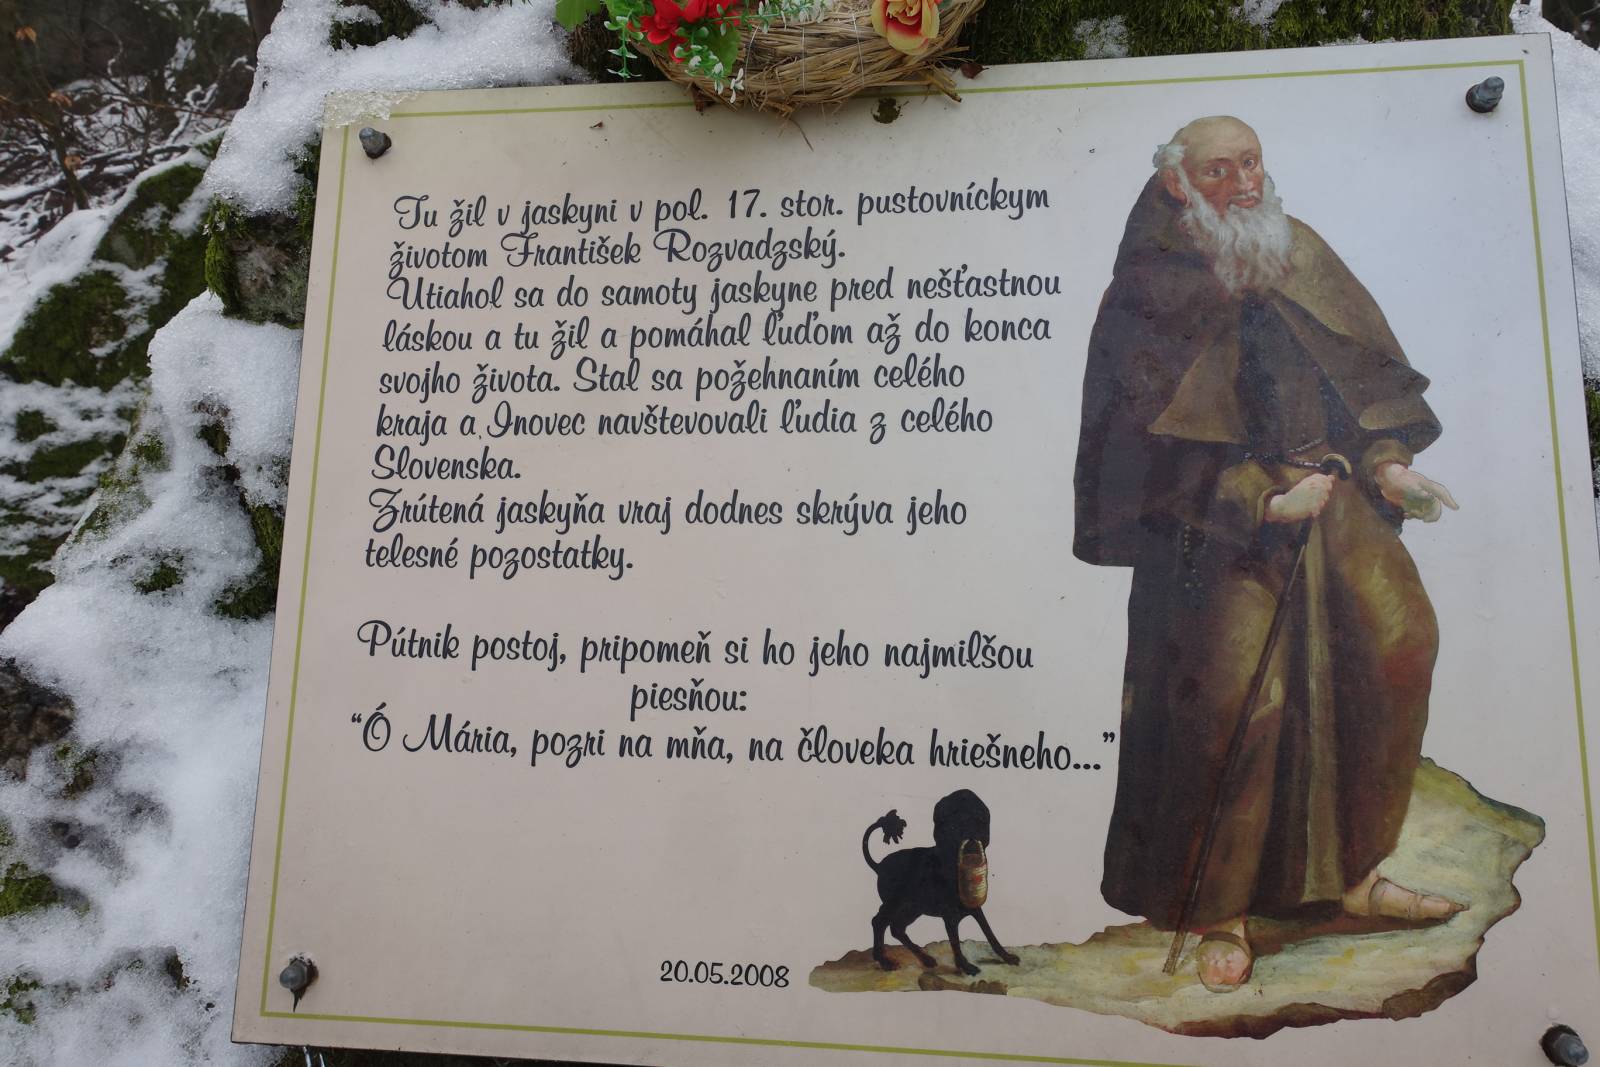 Tu žil v jaskyni v pol. 17. stor. pustovníckym
životom František Rozvadzský.
Utiahol sa do samoty jaskyne pred nešťastnou
láskou a tu žil a pomáhal ľuďom až do konca
svojho života. Stal sa požehnaním celého
kraja a Inovec navštevovali ľudia z celého
Slovenska.
Zrútená jaskyňa vraj dodnes skrýva jeho
telesné pozostatky.
Pútnik postoj, pripomeň si ho jeho najmilšou
piesňou:
“Ó Mária, pozri na mňa, na človeka hriešneho...”
20.05.2008